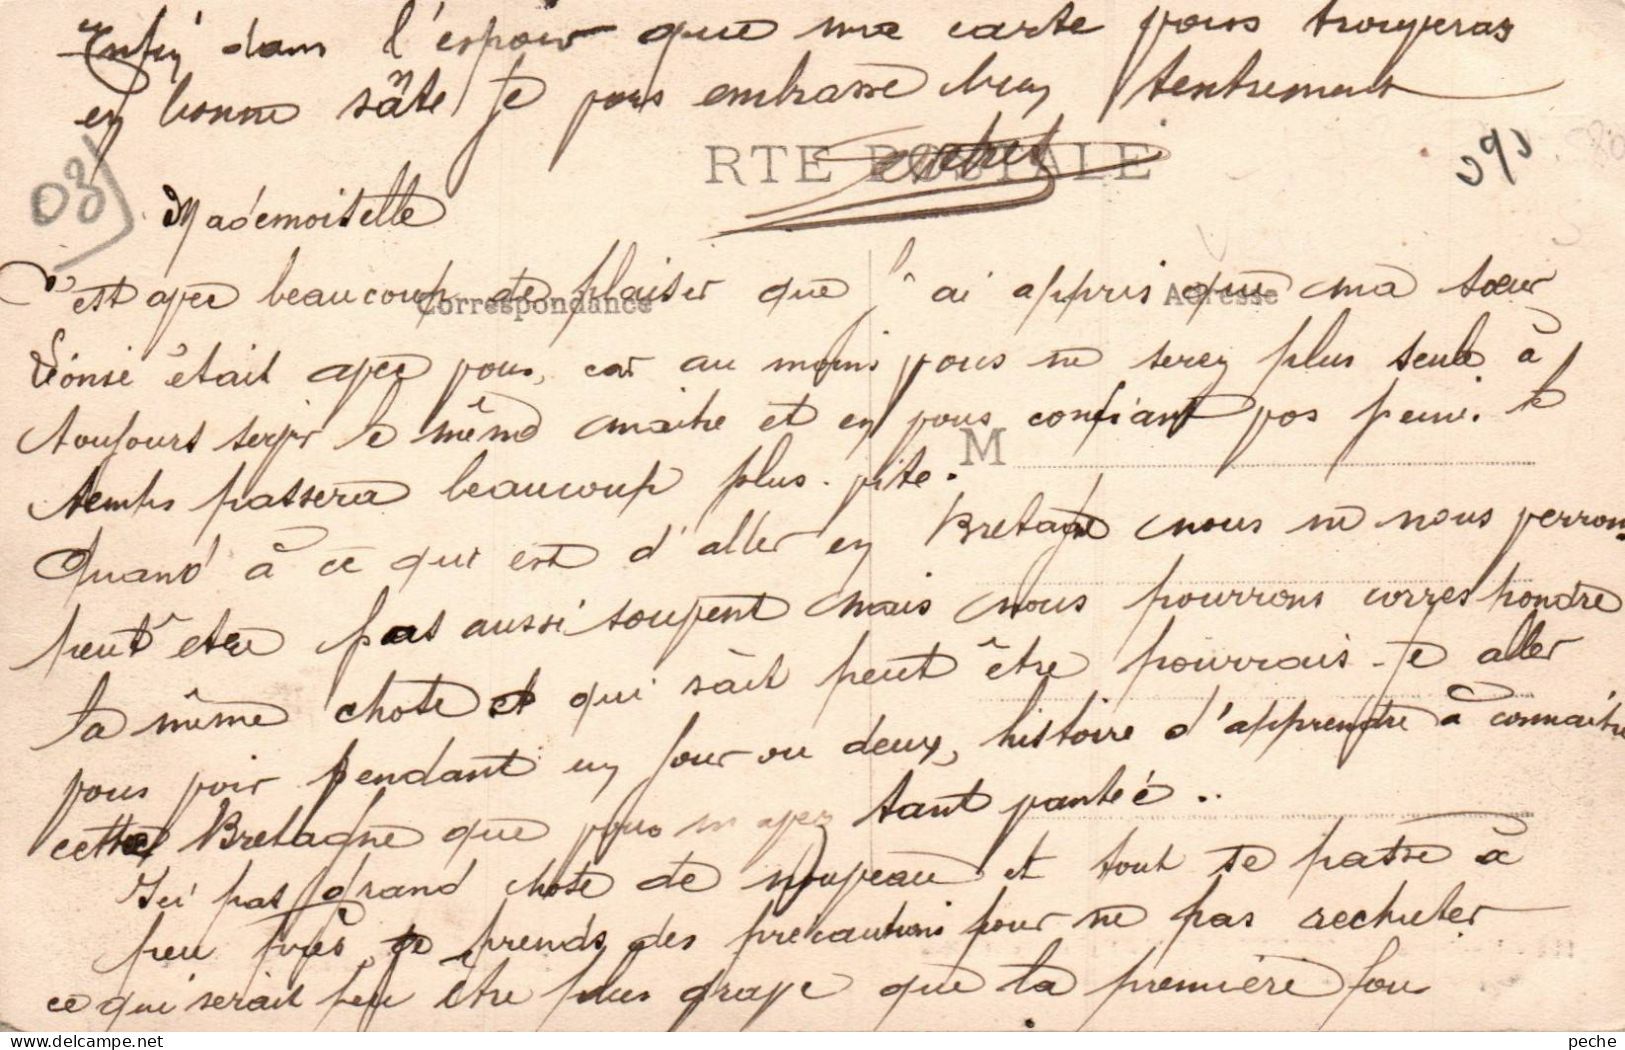 Enfin dans l'espoir que ma carte vous trouveras
en bonne sâte je vous embrasse bien tentrement
RTE POSTALE
03)
Mademoiselle
C'est avec beaucoup de plaisir que j'ai appris que ma sœur
Correspondance
Adresse
Léonie était avec vous, car au moins vous ne serez plus seule à
toujours servir le même maitre et en vous confiant vos peine. le
M
temps passera beaucoup plus vite.
Quand à ce qui est d'aller en Bretagne nous ne nous verrons
peut être pas aussi souvent mais nous pourrons correspondre
la même chose et qui sàit peut être pourrais-je aller
vous voir pendant un jour ou deux, histoire d'apprendre à connaitre
cette Bretagne que vous m'avez tant vantée..
Ici pas grand chose de nouveau et tout se passe à
peu près, je prends des précautions pour ne pas rechuter
ce qui serait peu être plus grave que la première fois
peche